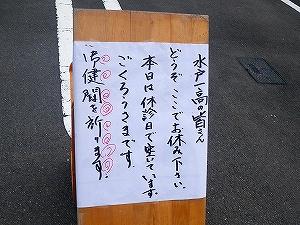 水戸一高の皆さん
どうぞここでお休み下さい。
本日は休診日で空いています。
ごくろうさまです。
御健闘を祈ります。